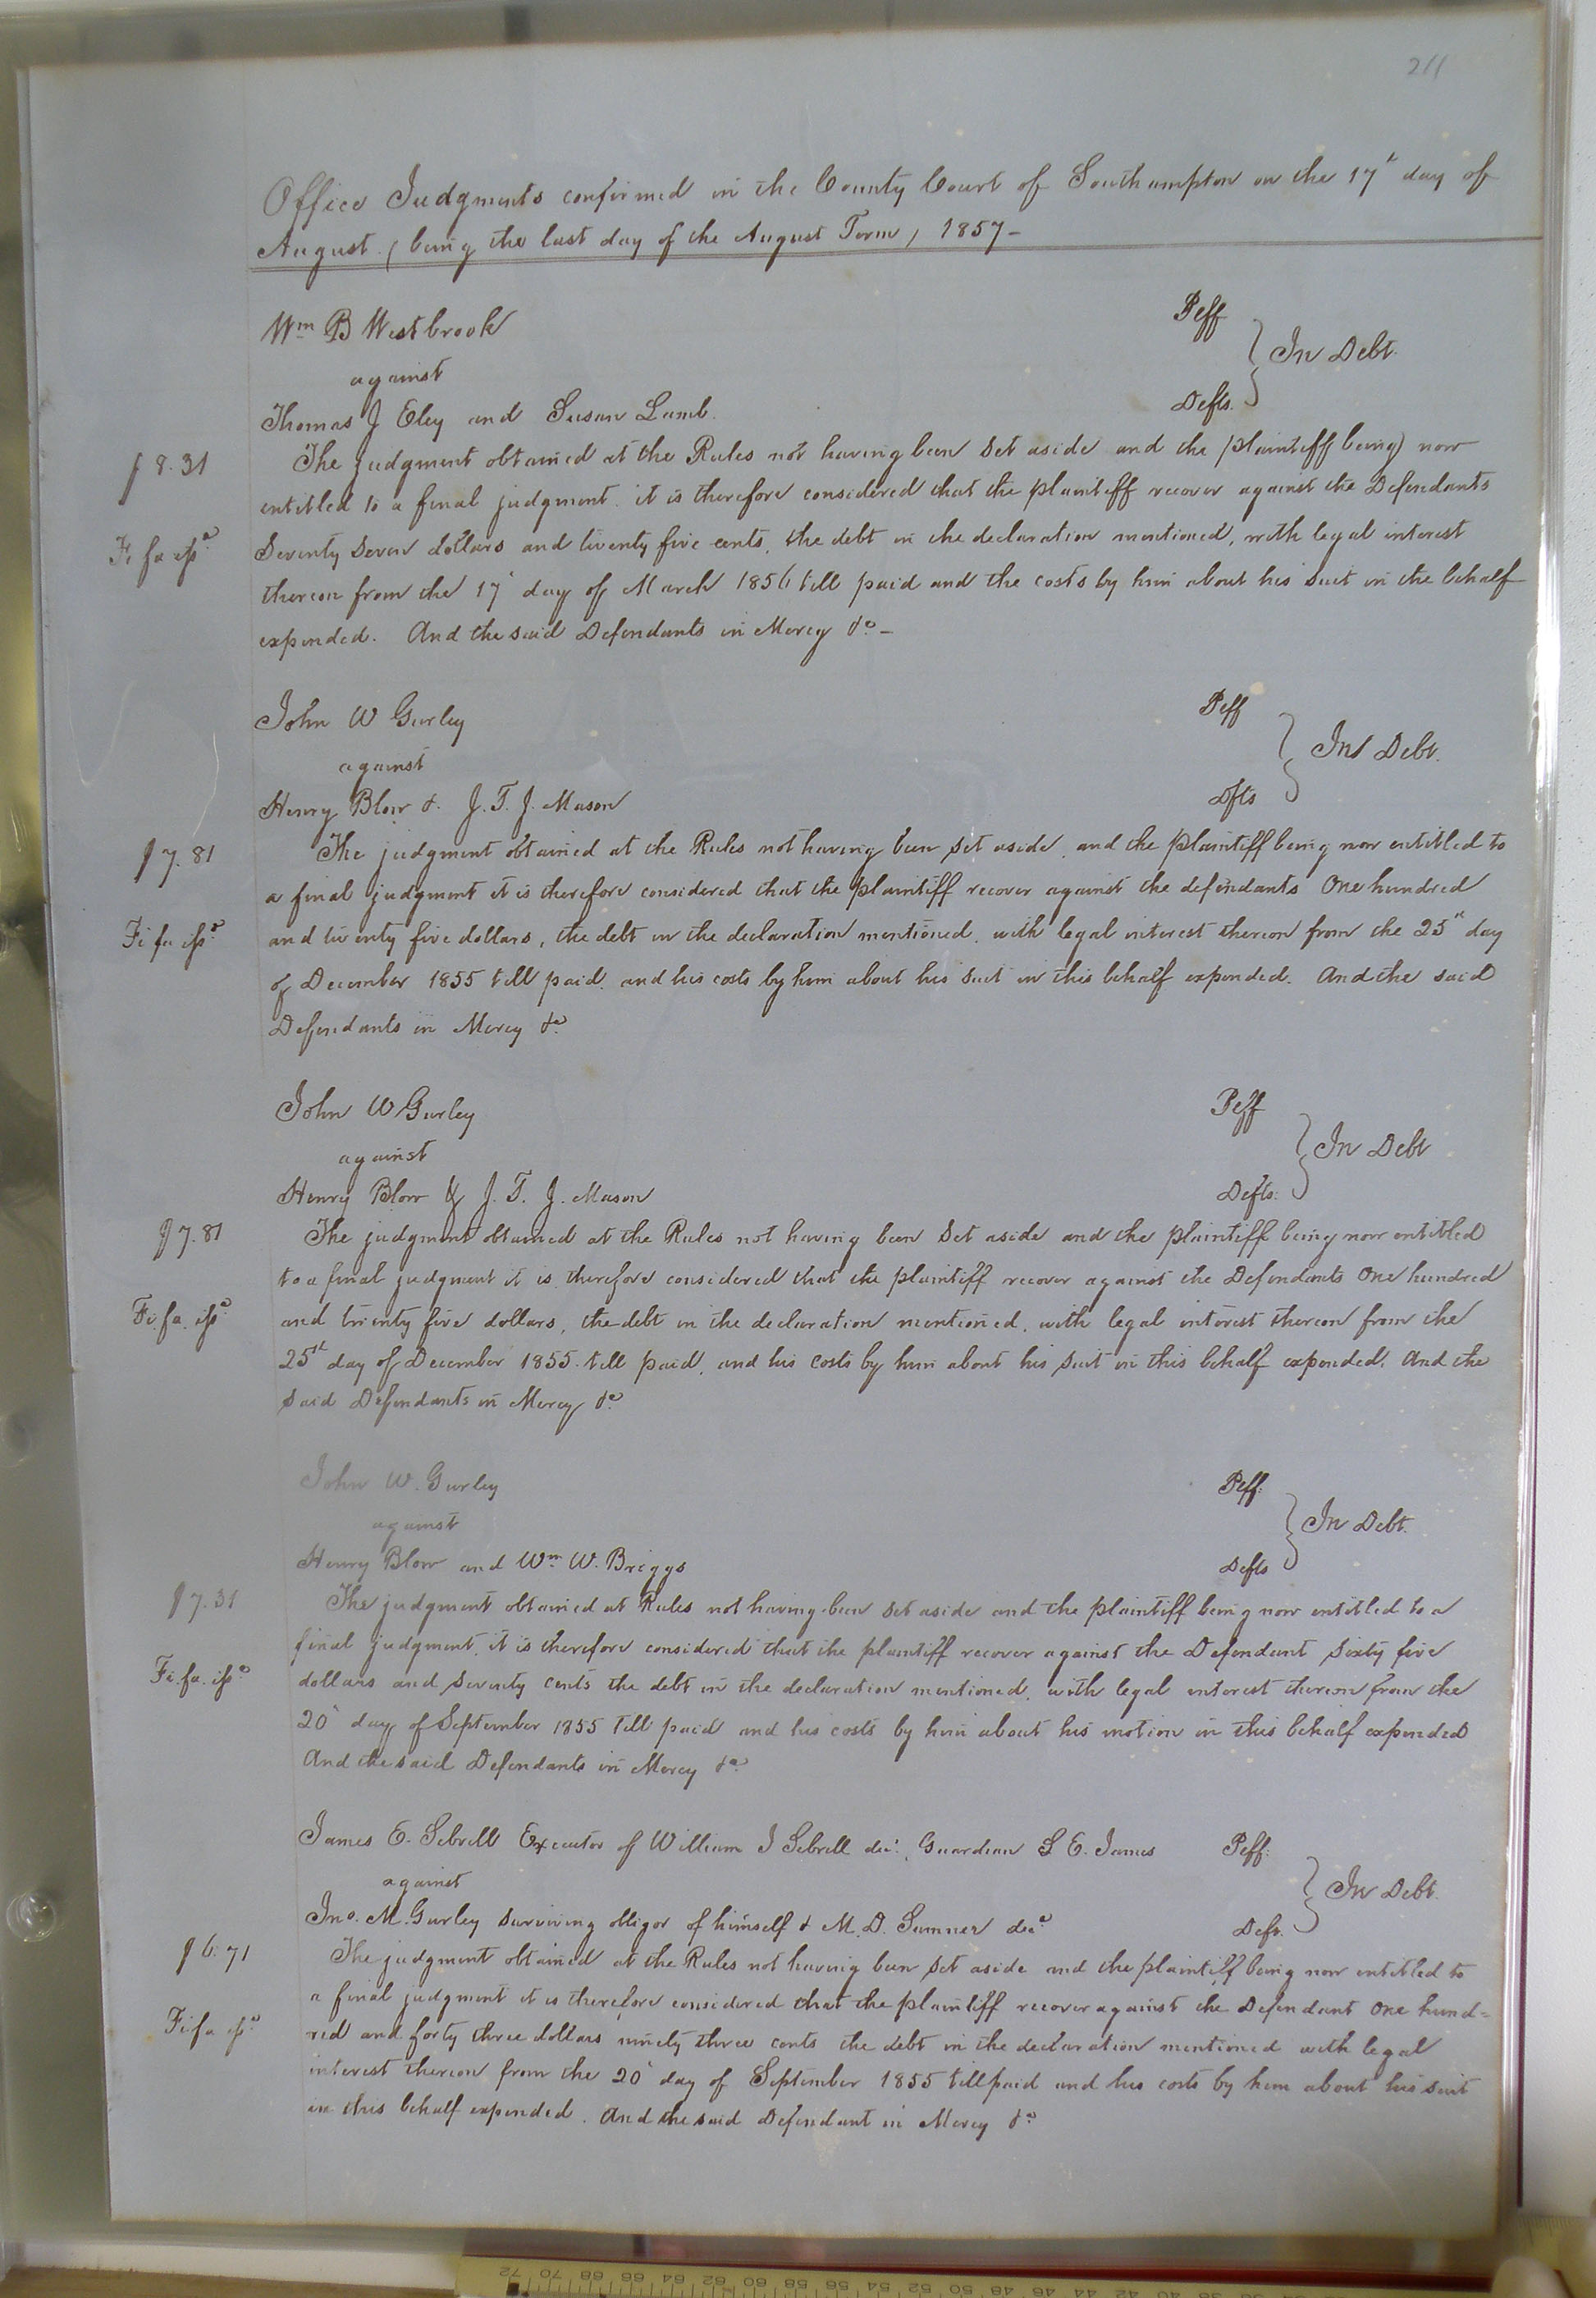 211
Office Judgments confirmed in the County Court of Southampton on the 17th day of
August (being the last day of the August Term) 1857-
Wm B Westbrook Plff
against In Debt.
Thomas J Eley and Susan Lamb. Defts.
The judgment obtained at the Rules not having been set aside and the (plaintiff being) now
$8.31
entitled to a final judgment. it is therefore considered that the plaintiff recover against the Defendants
Fi fa issd
Seventy Seven dollars and twenty five cents, the debt in the declaration mentioned, with legal interest
thereon from the 17th day of March 1856 till paid and the costs by him about his suit in the behalf
expended. And the said Defendants in Mercy &c-
John W Gurley Plff
against In Debt.
Henry Blow & J. T. J. Mason Dfts
$7.81
The judgment obtained at the Rules not having been set aside, and the plaintiff being now entitled to
a final judgment it is therefore considered that the plaintiff recover against the defendants One hundred
Fi fa issd
and twenty five dollars, the debt in the declaration mentioned, with legal interest thereon from the 25th day
of December 1855 till paid, and his costs by him about his suit in this behalf expended. And the said
Defendants in Mercy &c
John W Gurley Plff
against In Debt
Henry Blow & J. T. J. Mason Defts.
$7.81
The judgment obtained at the Rules not having been set aside and the plaintiff being now entitled
to a final judgment it is, therefore considered that the plaintiff recover against the Defendants One hundred
Fi fa. issd
and twenty five dollars, the debt in the declaration mentioned, with legal interest thereon from the
25th day of December 1855. till paid, and his costs by him about his suit in this behalf expended. And the
said Defendants in Mercy &c
John W. Gurley Plff.
against In Debt.
Henry Blow and Wm W. Briggs Defts
$7.31
The judgment obtained at Rules not having been set aside and the plaintiff being now entitled to a
final judgment, it is therefore considered that the plaintiff recover against the Defendant Sixty five
Fi. fa. issd
dollars and seventy cents the debt in the declaration mentioned, with legal interest thereon from the
20th day of September 1855 till paid and his costs by him about his motion in this behalf expended
And the said Defendants in Mercy &c
James E. Sebrell Executor of William J Sebrell decd., Guardian S E. James Plff.
against In Debt.
Jno. M. Gurley surviving obligor of himself & M. D. Sumner decd Deft.
$6.71
The judgment obtained at the Rules not having been set aside and the plaintiff being now entitled to
a final judgment it is therefore considered that the plaintiff recover against the Defendant One hund=
Fi fa issd
red and forty three dollars ninety three cents the debt in the declaration mentioned with legal
interest thereon from the 20th day of September 1855 till paid and his costs by him about his suit
in this behalf expended. And the said Defendant in Mercy &c
72 70 68 66 64 62 60 58 56 54 52 50 48 46 44 42 40